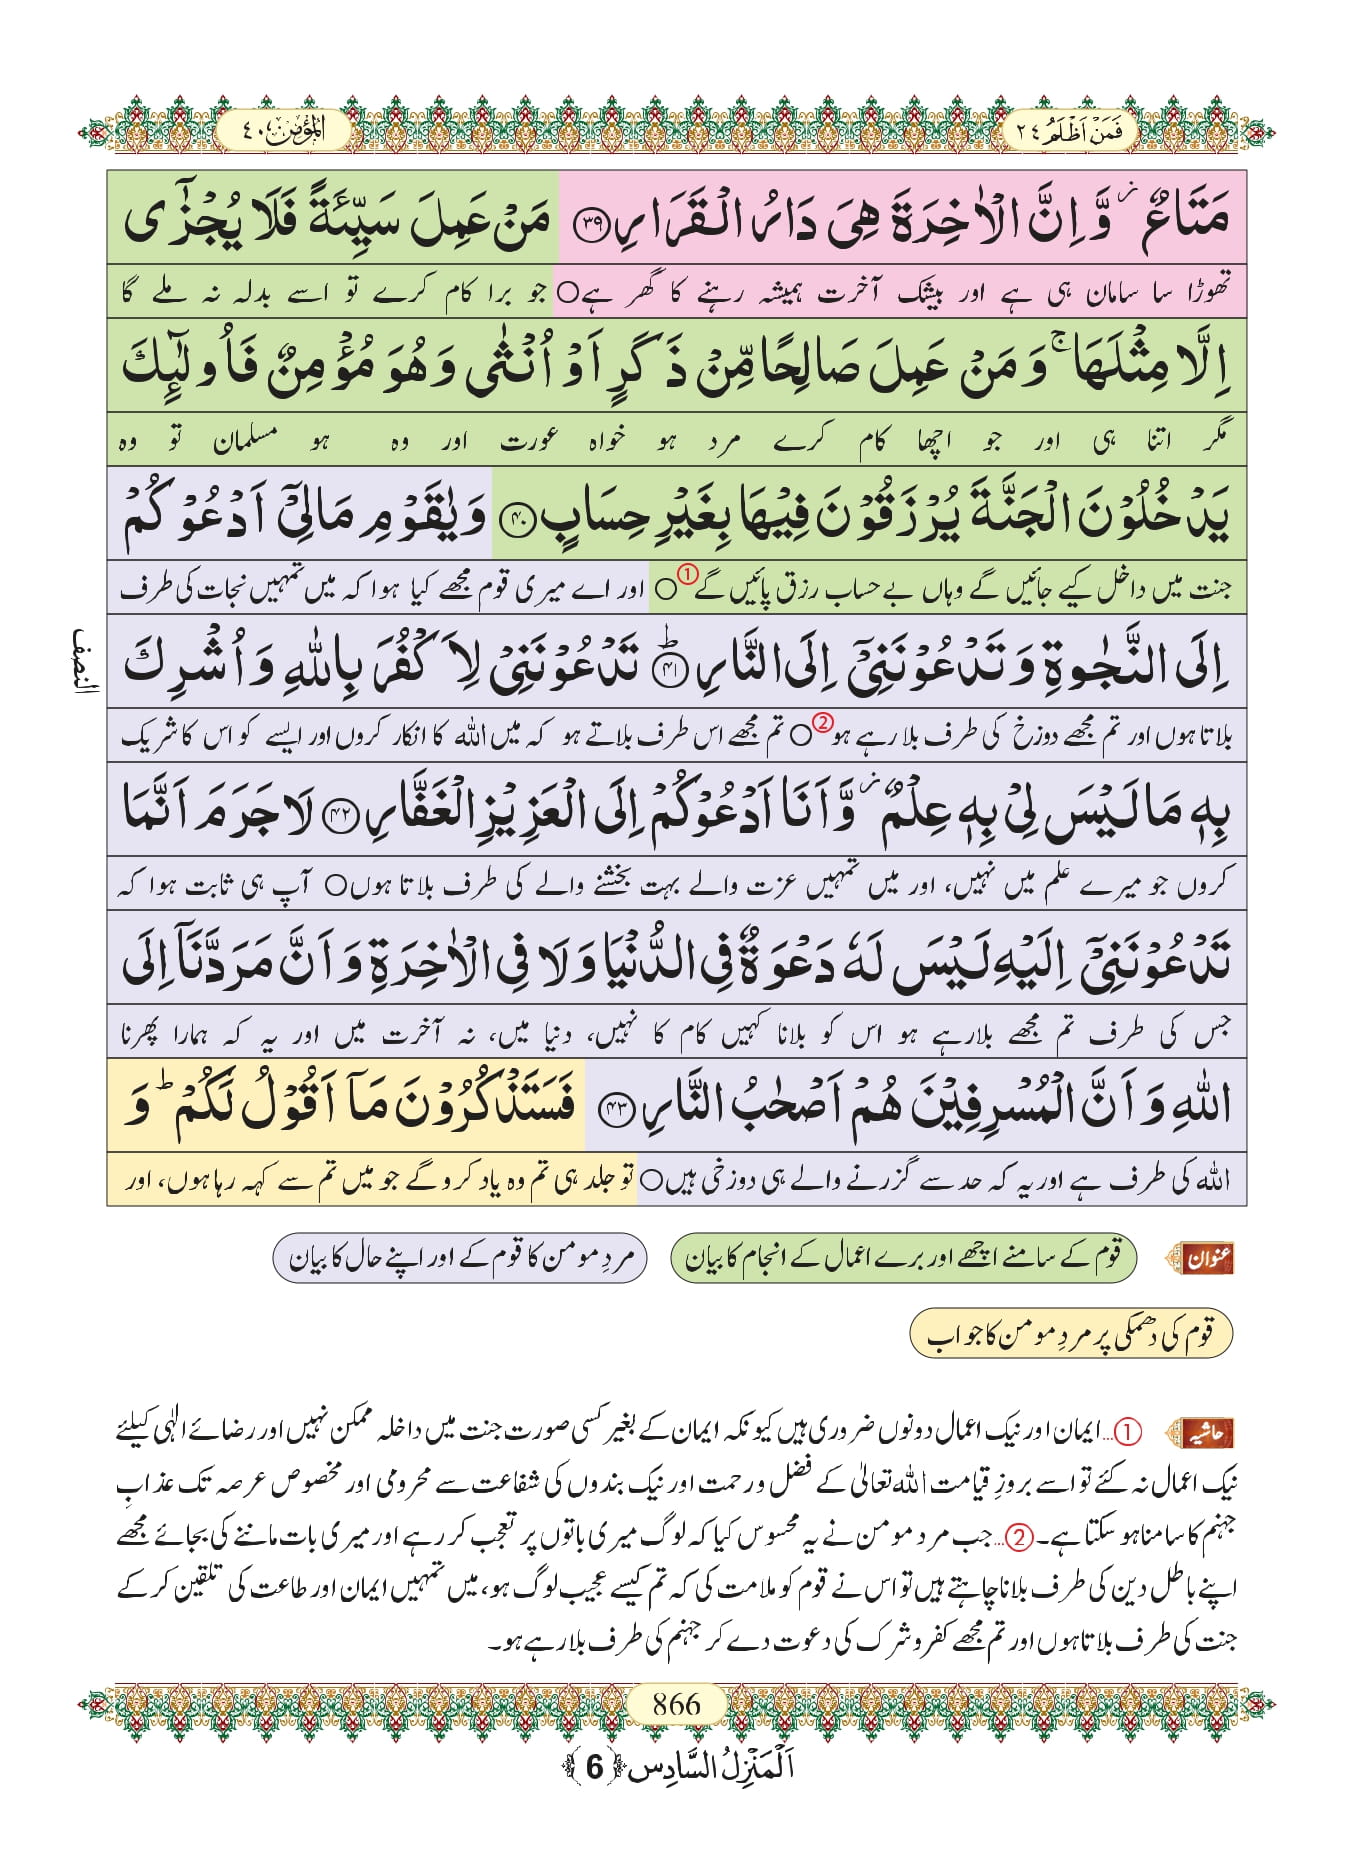 فَمَنْ اَظْلَمُ ٢٤
المؤمن ٤٠
مَتَاعٌ ؗ وَّ اِنَّ الْاٰخِرَةَ هِیَ دَارُ الْقَرَارِ ﴿۳۹﴾ مَنْ عَمِلَ سَیِّئَةً فَلَا یُجْزٰۤی
تھوڑا سا سامان ہی ہے اور بیشک آخرت ہمیشہ رہنے کا گھر ہے○ جو برا کام کرے تو اسے بدلہ نہ ملے گا
اِلَّا مِثْلَهَا ۚ وَ مَنْ عَمِلَ صَالِحًا مِّنْ ذَكَرٍ اَوْ اُنْثٰی وَ هُوَ مُؤْمِنٌ فَاُولٰٓىِٕكَ
مگر اتنا ہی اور جو اچھا کام کرے مرد ہو خواہ عورت اور وہ ہو مسلمان تو وہ
یَدْخُلُوْنَ الْجَنَّةَ یُرْزَقُوْنَ فِیْهَا بِغَیْرِ حِسَابٍ ﴿۴۰﴾ وَ یٰقَوْمِ مَا لِیْۤ اَدْعُوْكُمْ
جنت میں داخل کیے جائیں گے وہاں بے حساب رزق پائیں گے①○ اور اے میری قوم مجھے کیا ہوا کہ میں تمہیں نجات کی طرف
اِلَی النَّجٰوةِ وَ تَدْعُوْنَنِیْۤ اِلَی النَّارِ ؕ﴿۴۱﴾ تَدْعُوْنَنِیْ لِاَكْفُرَ بِاللّٰهِ وَ اُشْرِكَ
النصف
بلاتا ہوں اور تم مجھے دوزخ کی طرف بلا رہے ہو②○ تم مجھے اس طرف بلاتے ہو کہ میں اللہ کا انکار کروں اور ایسے کو اس کا شریک
بِهٖ مَا لَیْسَ لِیْ بِهٖ عِلْمٌ ؗ وَّ اَنَا اَدْعُوْكُمْ اِلَی الْعَزِیْزِ الْغَفَّارِ ﴿۴۲﴾ لَا جَرَمَ اَنَّمَا
کروں جو میرے علم میں نہیں، اور میں تمہیں عزت والے بہت بخشنے والے کی طرف بلاتا ہوں○ آپ ہی ثابت ہوا کہ
تَدْعُوْنَنِیْۤ اِلَیْهِ لَیْسَ لَهٗ دَعْوَةٌ فِی الدُّنْیَا وَ لَا فِی الْاٰخِرَةِ وَ اَنَّ مَرَدَّنَاۤ اِلَی
جس کی طرف تم مجھے بلارہے ہو اس کو بلانا کہیں کام کا نہیں، دنیا میں، نہ آخرت میں اور یہ کہ ہمارا پھرنا
اللّٰهِ وَ اَنَّ الْمُسْرِفِیْنَ هُمْ اَصْحٰبُ النَّارِ ﴿۴۳﴾ فَسَتَذْكُرُوْنَ مَاۤ اَقُوْلُ لَكُمْ ؕ وَ
اللہ کی طرف ہے اور یہ کہ حد سے گزرنے والے ہی دوزخی ہیں○ تو جلد ہی تم وہ یاد کرو گے جو میں تم سے کہہ رہا ہوں، اور
عنوان قوم کے سامنے اچھے اور برے اعمال کے انجام کا بیان مردِ مومن کا قوم کے اور اپنے حال کا بیان
قوم کی دھمکی پر مردِ مومن کا جواب
حاشیہ ①...ایمان اور نیک اعمال دونوں ضروری ہیں کیونکہ ایمان کے بغیر کسی صورت جنت میں داخلہ ممکن نہیں اور رضائے الٰہی کیلئے
نیک اعمال نہ کئے تو اسے بروزِ قیامت اللہ تعالیٰ کے فضل و رحمت اور نیک بندوں کی شفاعت سے محرومی اور مخصوص عرصہ تک عذابِ
جہنم کا سامنا ہو سکتا ہے۔ ②...جب مردِ مومن نے یہ محسوس کیا کہ لوگ میری باتوں پر تعجب کر رہے اور میری بات ماننے کی بجائے مجھے
اپنے باطل دین کی طرف بلانا چاہتے ہیں تو اس نے قوم کو ملامت کی کہ تم کیسے عجیب لوگ ہو، میں تمہیں ایمان اور طاعت کی تلقین کر کے
جنت کی طرف بلاتا ہوں اور تم مجھے کفر و شرک کی دعوت دے کر جہنم کی طرف بلا رہے ہو۔
866
اَلْمَنْزِلُ السَّادِس ﴿6﴾